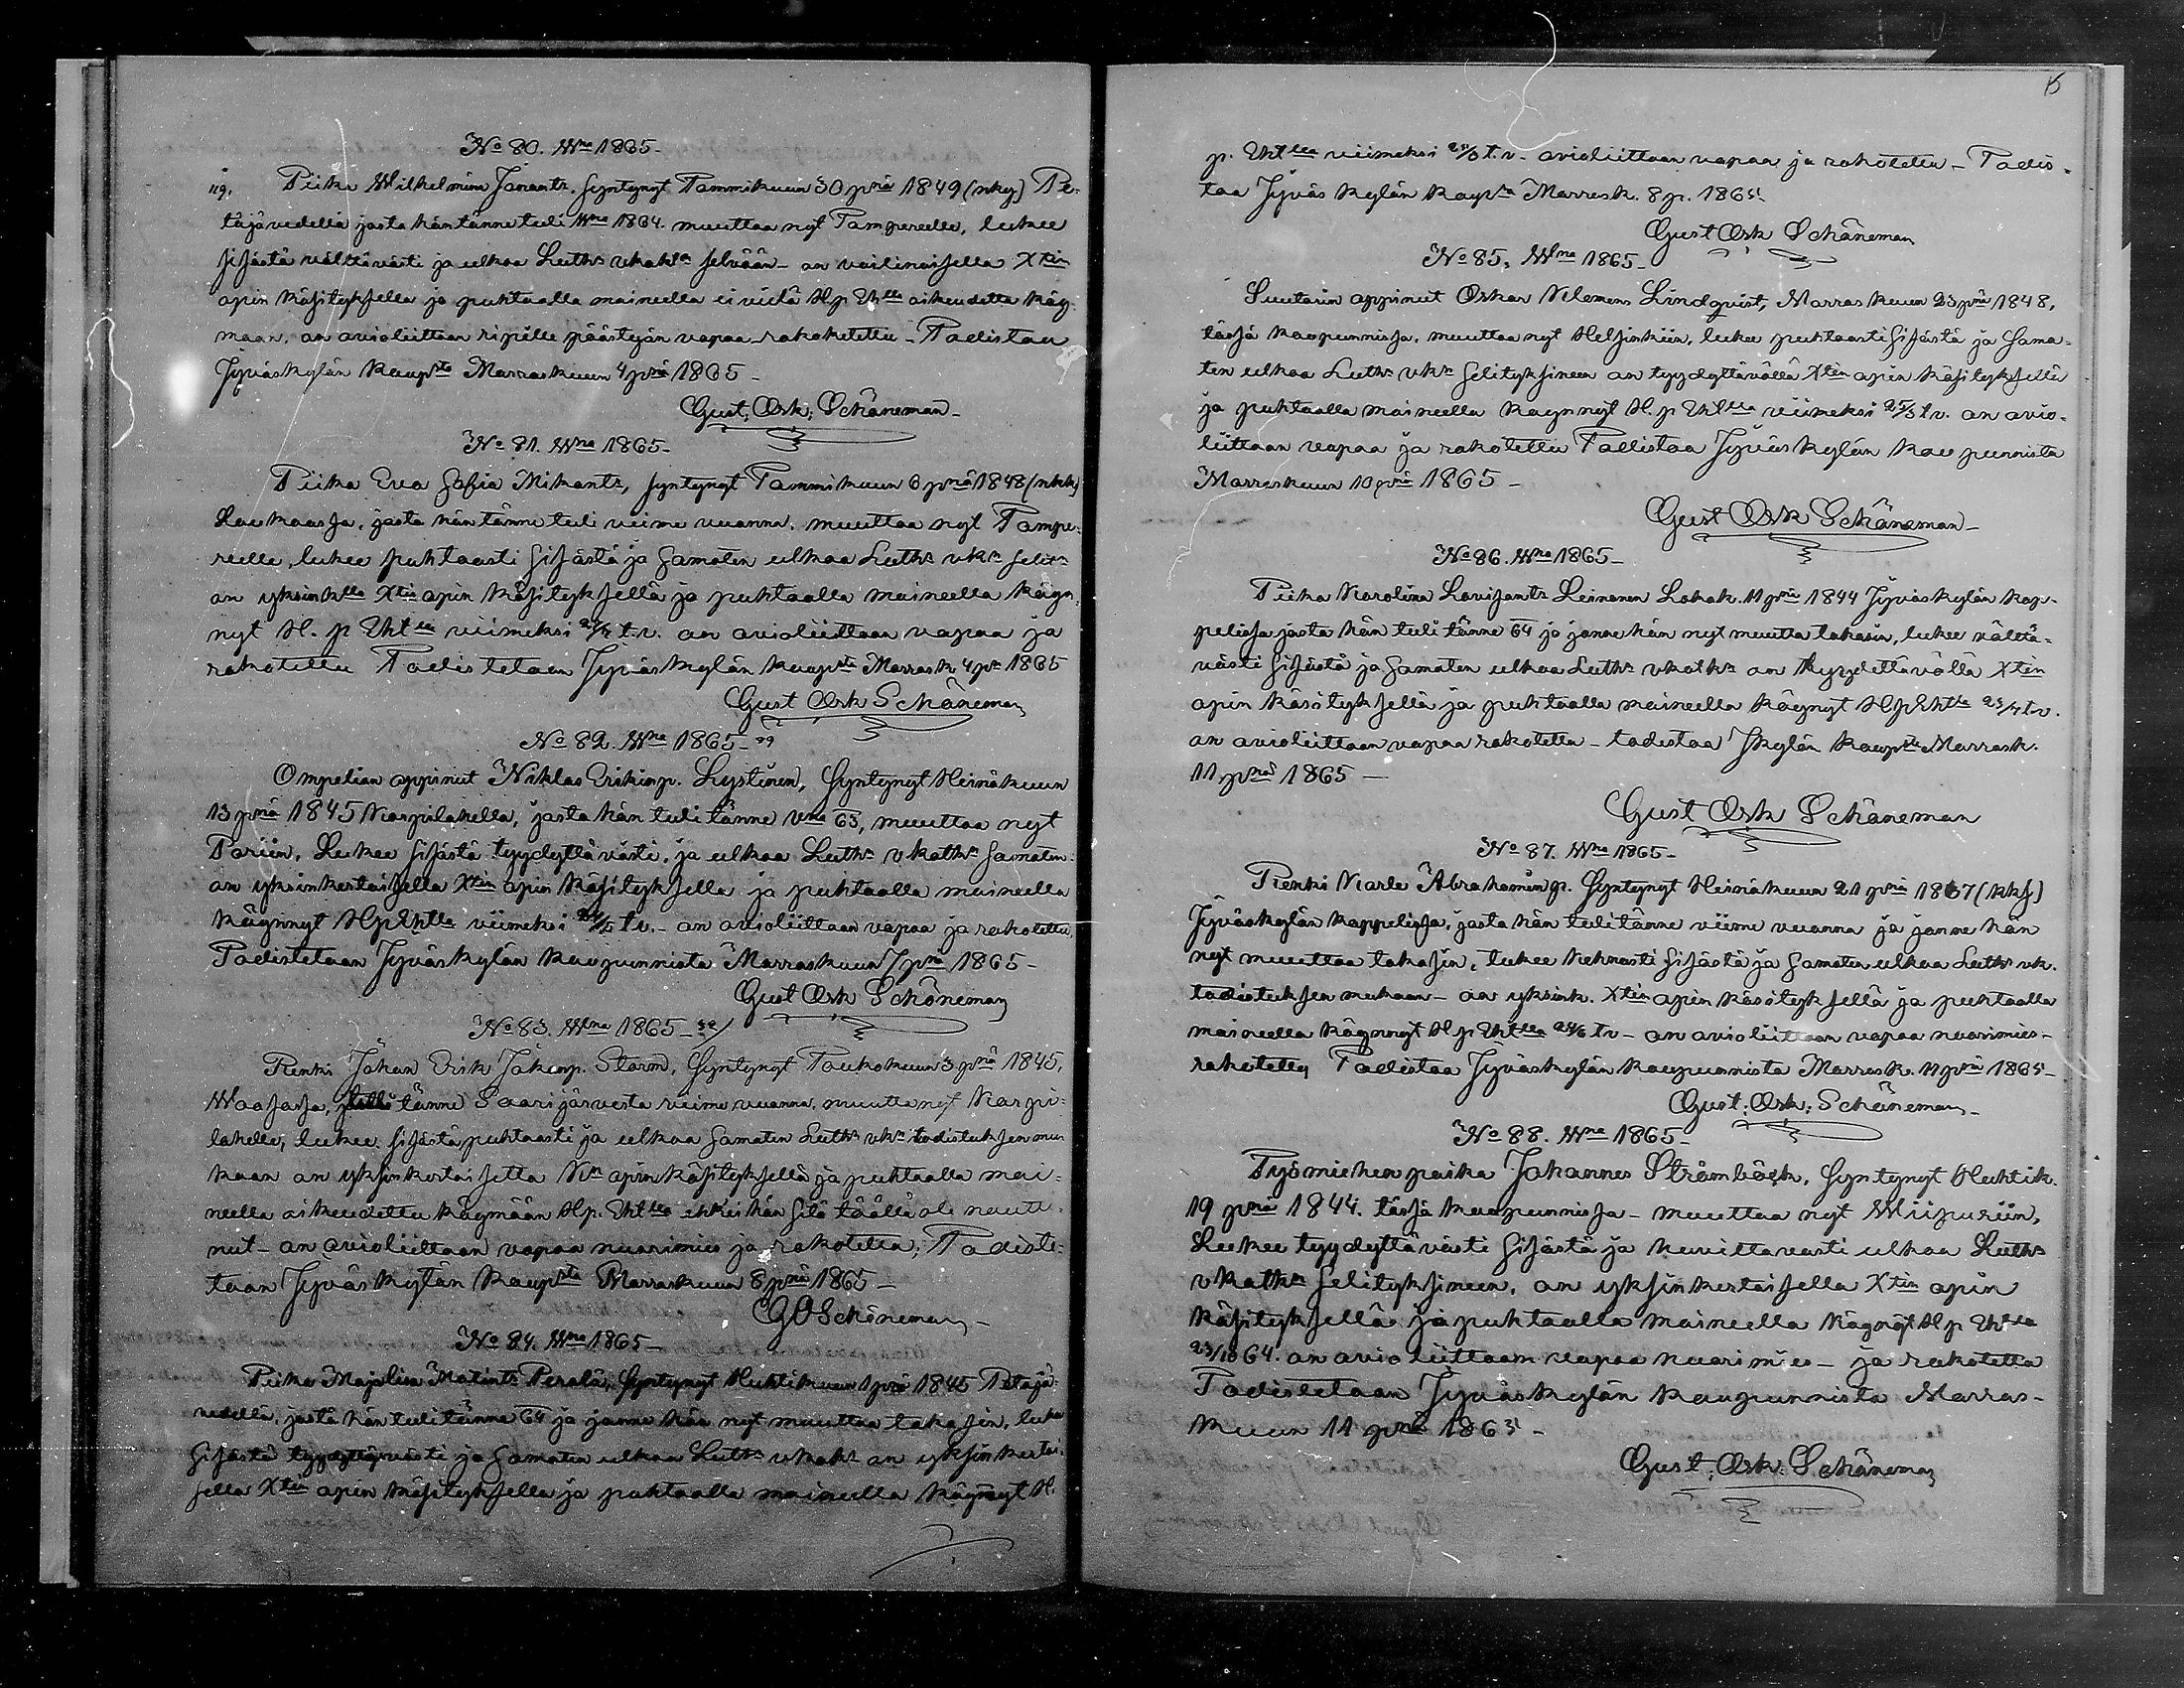 No 80. Wna 1865-
119. Piika Wilhelmina Janantr. syntynyt Tammikuun 30 pnä 1849 (nkey) Pe-
täjävedellä josta hän tänne tuli Wna 1864. muuttaa nyt Tampereelle, lukee
sisästä välttävästi ja ulkoa Luth: vkatk:n selvään - on vaillinaisella Xtin
opin käsityksellä ja puhtaalla maineella ei vielä H.p. Eht:lla oikeudettu käy-
maan. on avioliittoon ripille päästyän vapaa - rokotettu - Todistaa
Jyväskylän kaup:sta Marraskuun 4 pnä 1865-
Gust. Osk. Schöneman-
No 81. Wna 1865-
Piika Eva Sofia Mikontr, syntynyt Tammikuun 6 pnä 1848 (nkk)
Laukaassa, josta hän tänne tuli viime vuonna. muuttaa nyt Tampe-
reelle, lukee puhtaasti sisästä ja samaten ulkoa Luth: vk:n selit:n
on yksink:lla Xtin opin käsityksellä ja puhtaalla maineella käyn-
nyt H. p Eht:lla viimeksi t.v. on avioliittoon vapaa ja
rokotettu Todistetaan Jyväskylän kaup:sta Marrask 4 pn 1865
Gust Osk Schöneman
No 82. Wna 1865-
Ompelian oppinut Niklas Erikinp. Lystinen, Syntynyt Heinäkuun
13 pnä 1845 Karpilahella, josta hän tuli tänne Vna 63, muuttaa nyt
Poriin. Lukee sisästä tyydyttävästi, ja ulkoa Luth: vkatk:n samaten.
on yksinkertaisella Xtin opin käsityksellä ja puhtaalla maineella
käynnyt H.p Eht:lla viimeksi t.v. - on avioliittoon vapaa ja rokotettu,
Todistetaan Jyväskylän kaupunnista Marraskuun 7 pnä 1865-
Gust Osk Schöneman
No 83. Wna 1865-
Renki Johan Erik Jakonp. Storm, Syntynyt Toukokuun 3 pnä 1845,
Waasassa, tänne Saarijärvesta viime vuonna, muuttaa nyt Karpi-
lahelle, lukee sisästä puhtaasti ja ulkoa samaten Luth: vk:n todistuksen mu-
kaan on yksinkertaisella Xn opin käsityksellä ja puhtaalla mai-
neella oikeudettu käymään H.p. Eht:lla ehkei hän sitä täällä ole nautt-
nut - on avioliittoon vapaa nuorimies ja rokotettu, Todiste-
taan Jyväskylän kaup:sta Marraskuun 8 pnä 1865-
GOSchöneman-
No 84. Wna 1865-
Piika Majalisa Matintr Perälä, Syntynyt Huhtikuun 1 pnä 1845 Petäjä-
vedellä, josta hän tuli tänne 64 ja jonne hän nyt muuttaa takasin, lukee
sisästä tyydyttävästi ja samaten ulkoa Luth: vkatk: on yksinkertai-
sella Xtin opin käsityksellä ja puhtaalla maineella käynnyt H.
15
p. Eht:lla viimeksi t.v. - avioliittoon vapaa ja rokotettu - Todis-
taa Jyväskylän kaup:sta Marrask. 8 p. 1865.
Gust Osk Schöneman
No 85. Wna 1865-
Suutarin oppinut Oskar Klemens Lindqvist, Marraskuun 23 pnä 1848,
tässä kaupunnissa, muuttaa nyt Helsinkiin, lukee puhtaasti sisästä ja sama-
ten ulkoa Luth: vk:n selityksineen on tyydyttävällä Xtin opin käsityksellä
ja puhtaalla maineella käynnyt H.p Eht:lla viimeksi 25/3 t.v. on avio-
liittoon vapaa ja rokotettu Todistaa Jyväskylän kaupunnista
Marraskuun 10 pnä 1865-
Gust Osk Schöneman-
No 86. Wna 1865-
Piika Karolina Lovisantr Leinonen Lokak. 11 pnä 1844 Jyväskylän kap-
pelissa josta hän tuli tänne 64 ja jonne hän nyt muutta takasin, lukee välttä-
västi sisästä ja samaten ulkoa Luth: vkatk:n on tyydettävällä Xtin
opin käsityksellä ja puhtaalla maineella käynnyt H.p Eht:lla 23/4 t.v.
on avioliittoon vapaa rokotettu - todistaa Jkylän kaup:sta Marrask.
11 pnä 1865-
Gust Osk Schöneman
No 87. Wna 1865-
Renki Karle Abrahaminp. Syntynyt Heinäkuun 21 pnä 1867 (kks)
Jyväskylän kappelissa, josta hän tuli tänne viime vuonna ja jonne hän
nyt muuttaa takasin, lukee kehnosti sisästä ja samaten ulkoa Luth: vk.
todistuksen mukaan - on yksink. Xtin opin käsityksellä ja puhtaalla
maineella käynnyt H.p Eht:lla 24/6 t.v - on avioliittoon vapaa nuorimies-
rokotettu Todistaa Jyväskylän kaupunnista Marrask. 11 pnä 1865-
Gust. Osk. Schöneman-
No 88. Wna 1865-
Työmiehen poika Johannes Strömbäck, Syntynyt Huhtik.
19 pnä 1844. tässä kaupunnissa - muuttaa nyt Wiipuriin,
Lukee tyydyttävästi sisästä ja kuvittavasti ulkoa Luth:
vkatk:n selityksineen, on yksinkertaisella Xtin opin
käsityksellä ja puhtaalla maineella käynyt H.p Eht:lla
23/10 64. on avioliittoon vapaa nuorimies - ja rokotettu
Todistetaan Jyväskylän kaupunnista Marras-
kuun 11 pnä 1865-
Gust. Osk. Schöneman